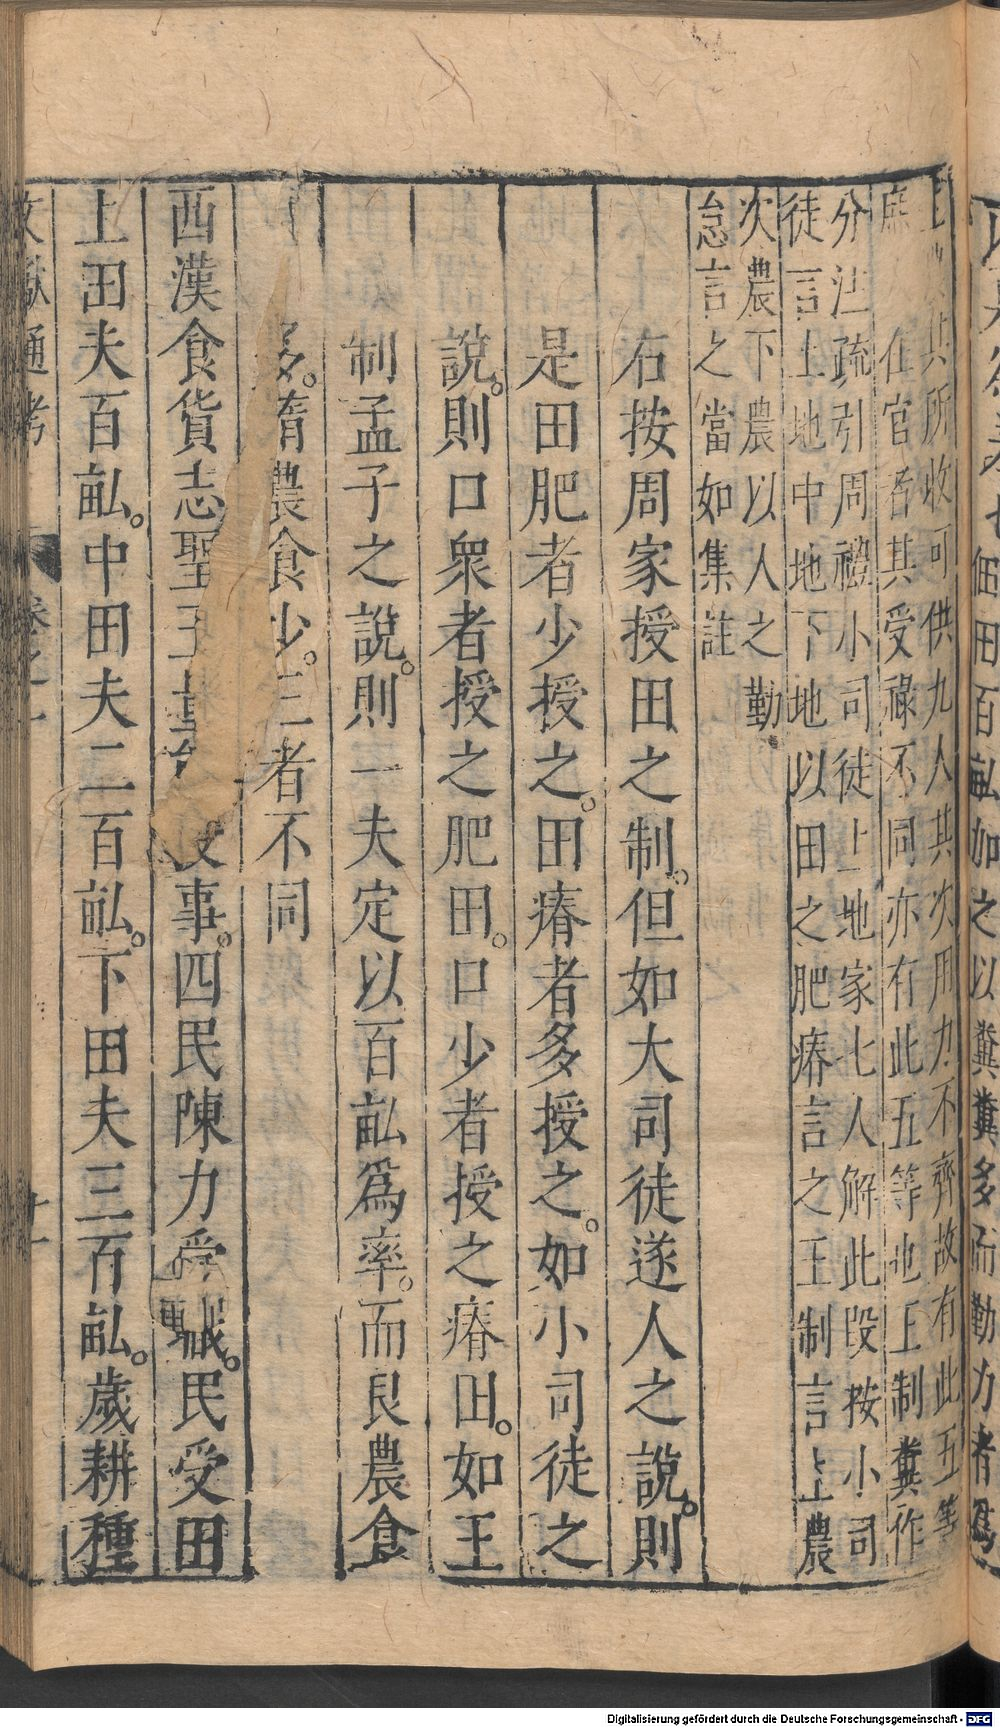 佃田百畝加之以糞糞多而勤力者爲
其所收可供九人其次用力不齊故有此五等
庶 在官者其受祿不同亦有此五等也王制糞作
分注疏引周禮小司徒上地家七人解此段按小司
徒言上地中地下地以田之肥瘠言之王制言上農
次農下農以人之勤
怠言之當如集註
右按周家授田之制。但如大司徒遂人之說。則
是田肥者少授之。田瘠者多授之。如小司徒之
說。則口衆者授之肥田。口少者授之瘠田。如王
制孟子之說。則一夫定以百畝爲率。而良農食
多。惰農食少。三者不同
西漢食貨志聖王量 事。四民陳力受職。民受田
上田夫百畝。中田夫二百畝。下田夫三百畝。歲耕種
文獻通考 卷之一 十一
Digitalisierung gefördert durch die Deutsche Forschungsgemeinschaft - DFG